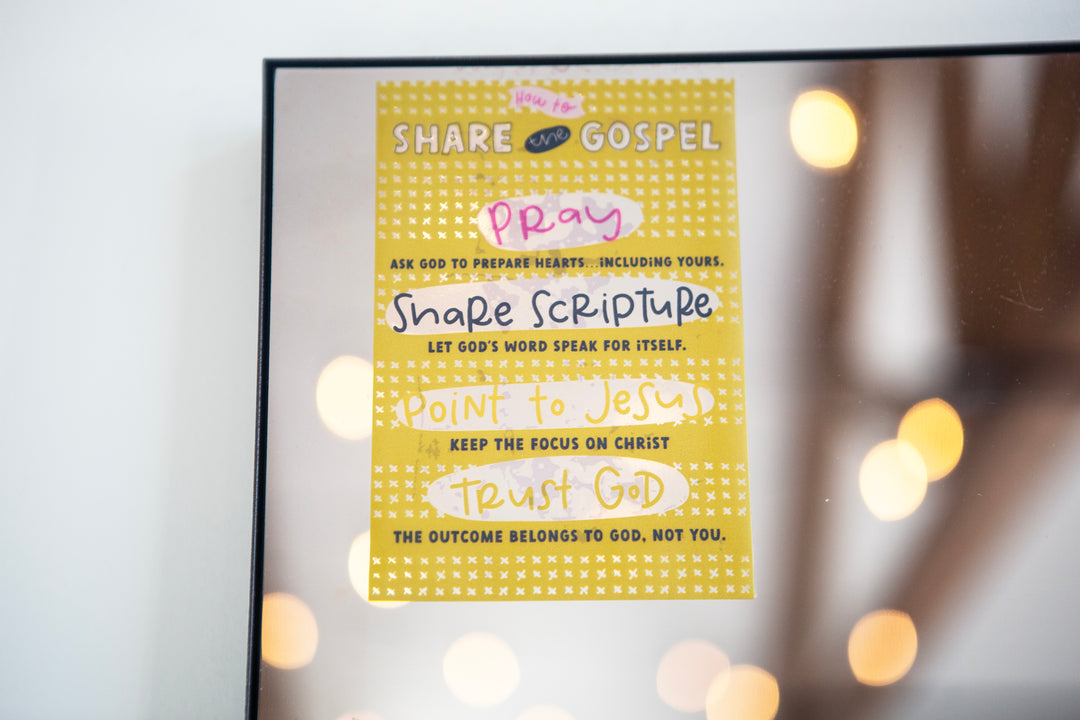 How to
SHARE the GOSPEL
PRay
ASK GOD TO PREPARE HEARTS...iNCLUDiNG YOURS.
SHaRE SCRiPTURE
LET GOD'S WORD SPEAK FOR iTSELF.
PoiNt to JeSuS
KEEP THE FOCUS ON CHRiST
TRuSt GoD
THE OUTCOME BELONGS TO GOD, NOT YOU.